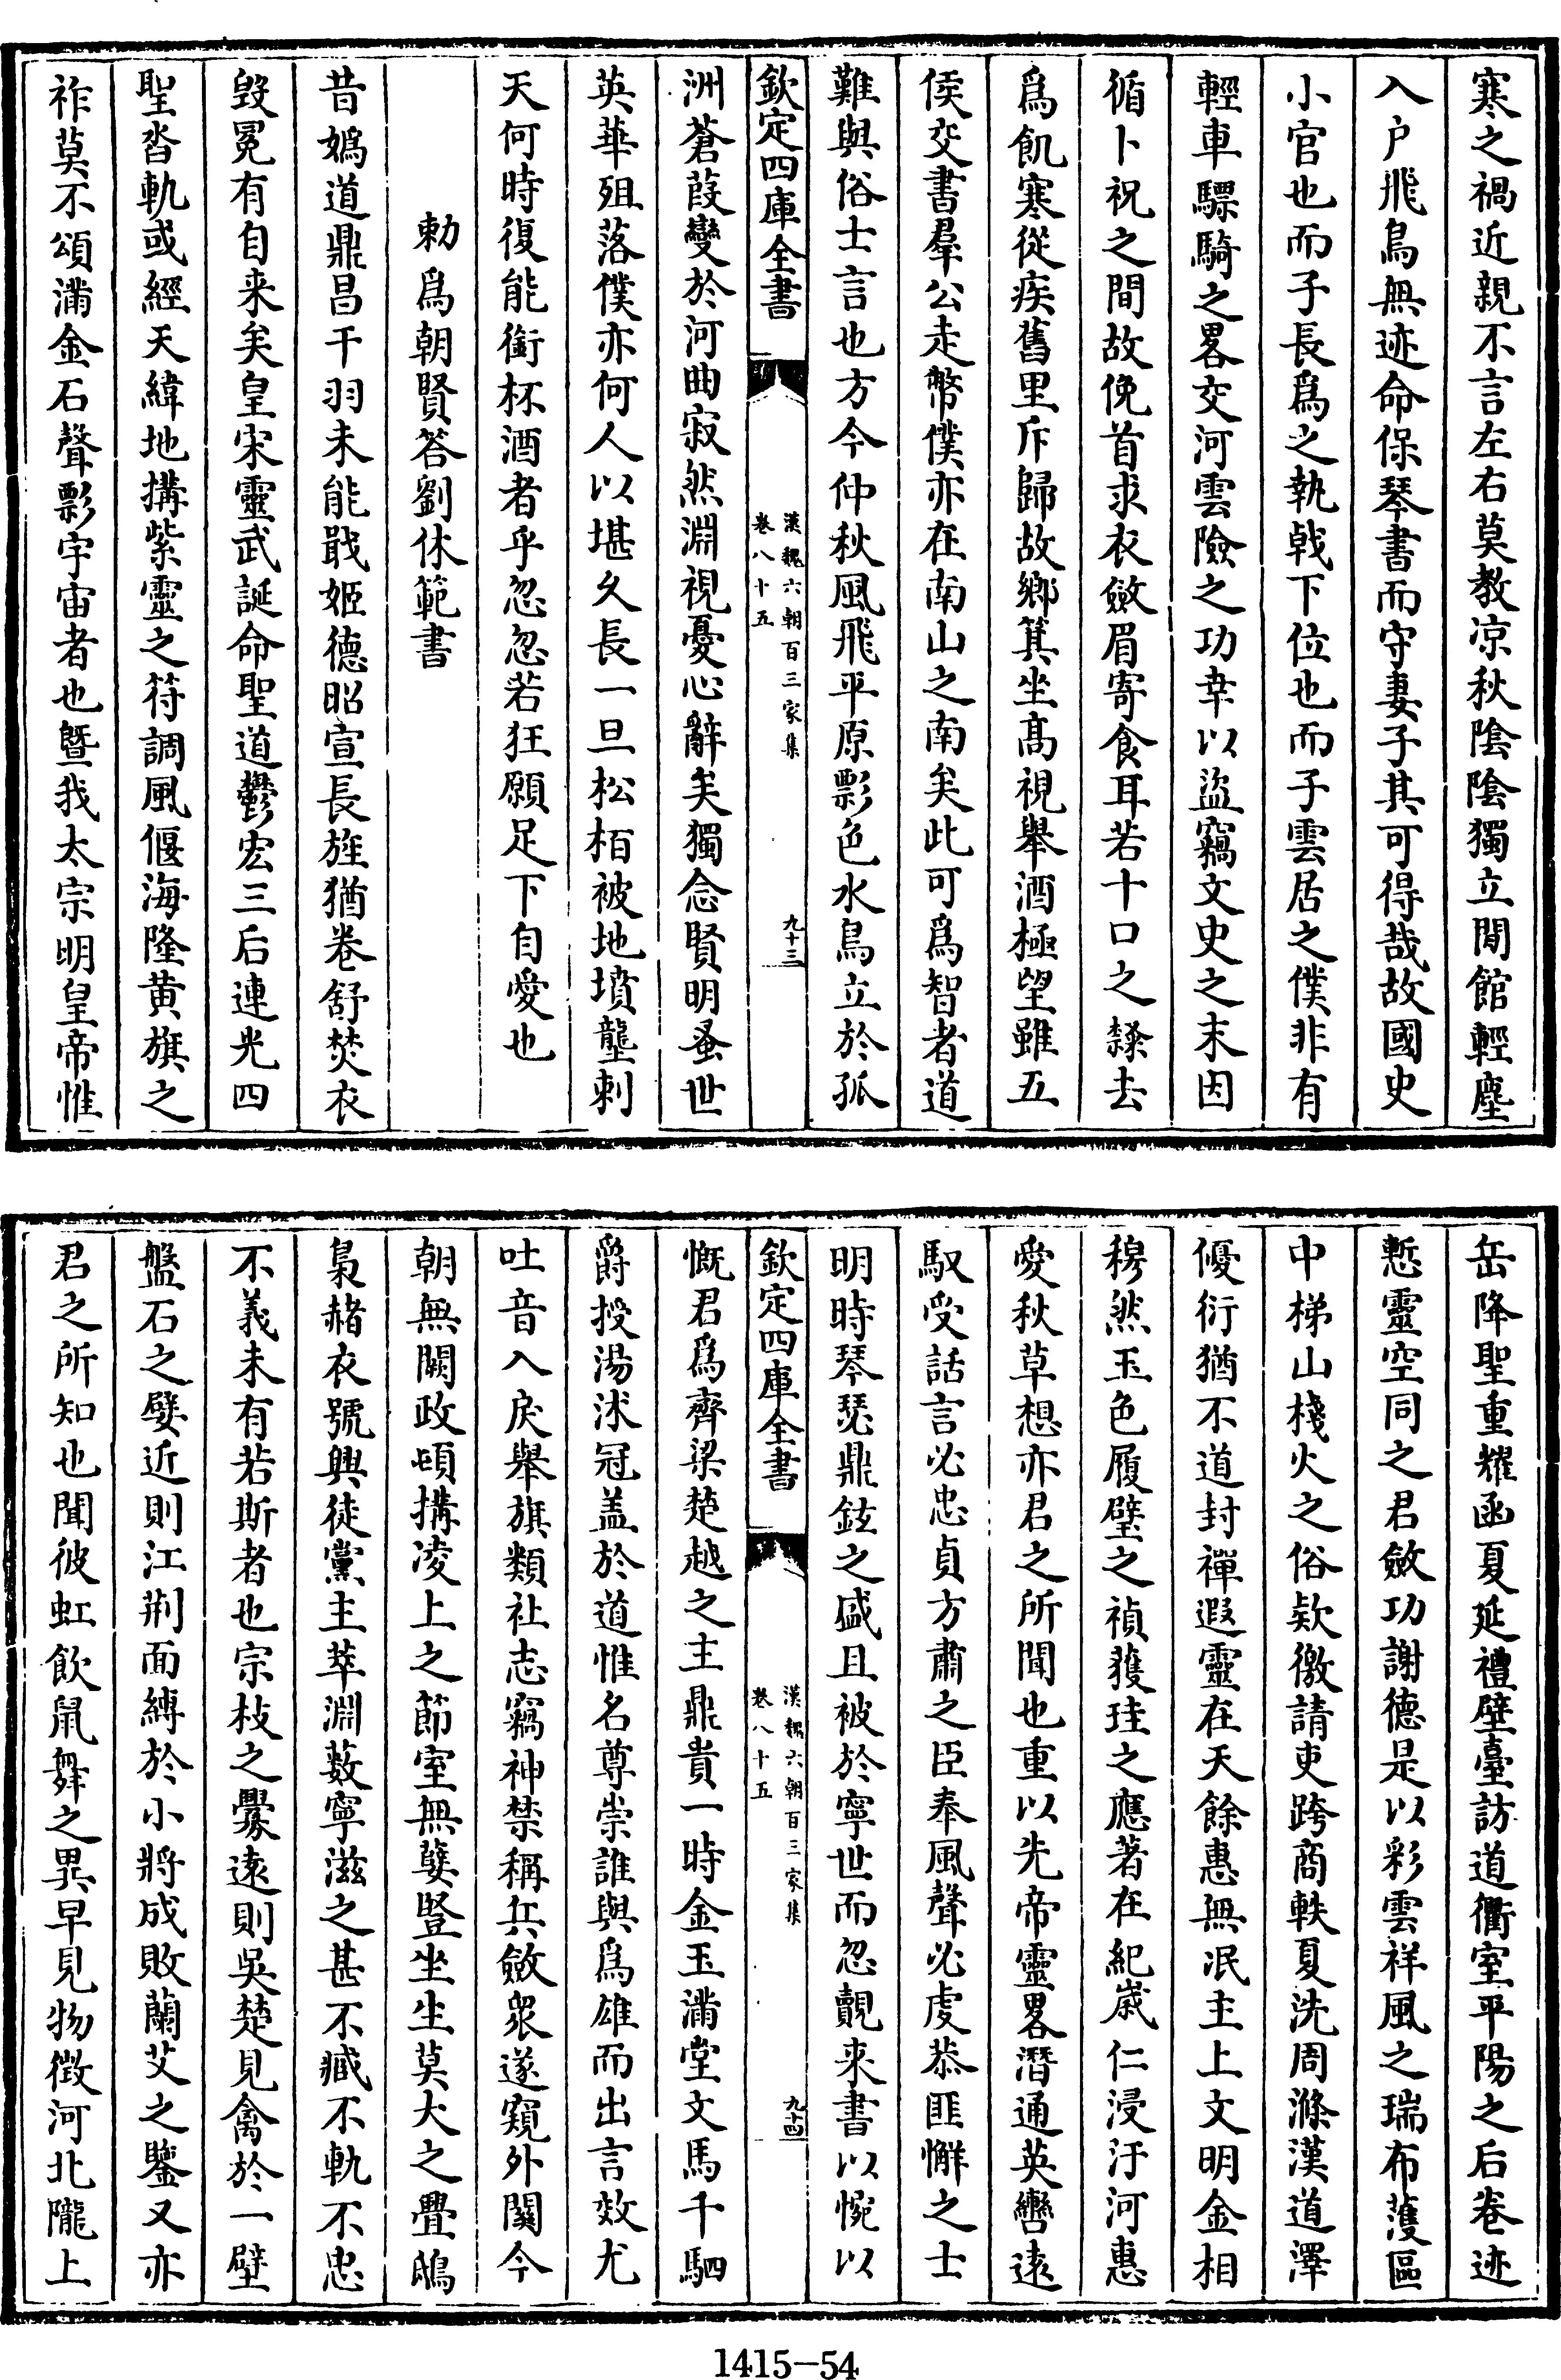 寒之禍近親不言左右莫教凉秋陰陰獨立閒館輕塵
入户飛鳥無迹命保琴書而守妻子其可得哉故國史
小官也而子長爲之執戟下位也而子雲居之僕非有
輕車驃騎之畧交河雲險之功幸以盜竊文史之末因
循卜祝之間故俛首求衣斂眉寄食耳若十口之隸去
爲飢寒從疾舊里斥歸故鄉箕坐高視舉酒極望雖五
侯交書羣公走幣僕亦在南山之南矣此可爲智者道
難與俗士言也方今仲秋風飛平原彯色水鳥立於孤
欽定四庫全書
漢魏六朝百三家集
卷八十五
九十三
洲蒼葭變於河曲寂然淵視憂心辭矣獨念賢明蚤世
英華殂落僕亦何人以堪久長一旦松栢被地墳壟刺
天何時復能銜杯酒者乎忽忽若狂願足下自愛也
勅爲朝賢答劉休範書
昔嬀道鼎昌干羽未能戢姬德昭宣長旌猶卷舒焚衣
毀冕有自来矣皇宋靈武誕命聖道鬱宏三后連光四
聖沓軌或經天緯地搆紫靈之符調風偃海隆黄旗之
祚莫不頌滿金石聲彯宇宙者也曁我太宗明皇帝惟
岳降聖重耀函夏延禮壁臺訪道衢室平陽之后卷迹
慙靈空同之君斂功謝德是以彩雲祥風之瑞布濩區
中梯山棧火之俗欵徼請吏跨商軼夏洗周滌漢道澤
優衍猶不道封禪遐靈在天餘惠無泯主上文明金相
穆然玉色履璧之禎獲珪之應著在紀歳仁浸汙河惠
愛秋草想亦君之所聞也重以先帝靈畧潛通英轡遠
馭受話言必忠貞方肅之臣奉風聲必虔恭匪懈之士
明時琴瑟鼎鉉之盛且被於寧世而忽覿来書以惋以
欽定四庫全書
漢魏六朝百三家集
卷八十五
九十四
慨君爲齊梁楚越之主鼎貴一時金玉滿堂文馬千駟
爵授湯沭冠盖於道惟名尊崇誰與爲雄而出言效尤
吐音入戾舉旗類社志竊神禁稱兵斂衆遂窺外闗今
朝無闕政頓搆凌上之節室無嬖豎坐生莫大之疊鴟
梟赭衣號興徒黨主萃淵藪寧滋之甚不臧不軌不忠
不義未有若斯者也宗枝之釁遠則吳楚見禽於一壁
盤石之孽近則江荆面縛於小將成敗蘭艾之鑒又亦
君之所知也聞彼虹飲鼠舞之異早見物徴河北隴上
1415－54